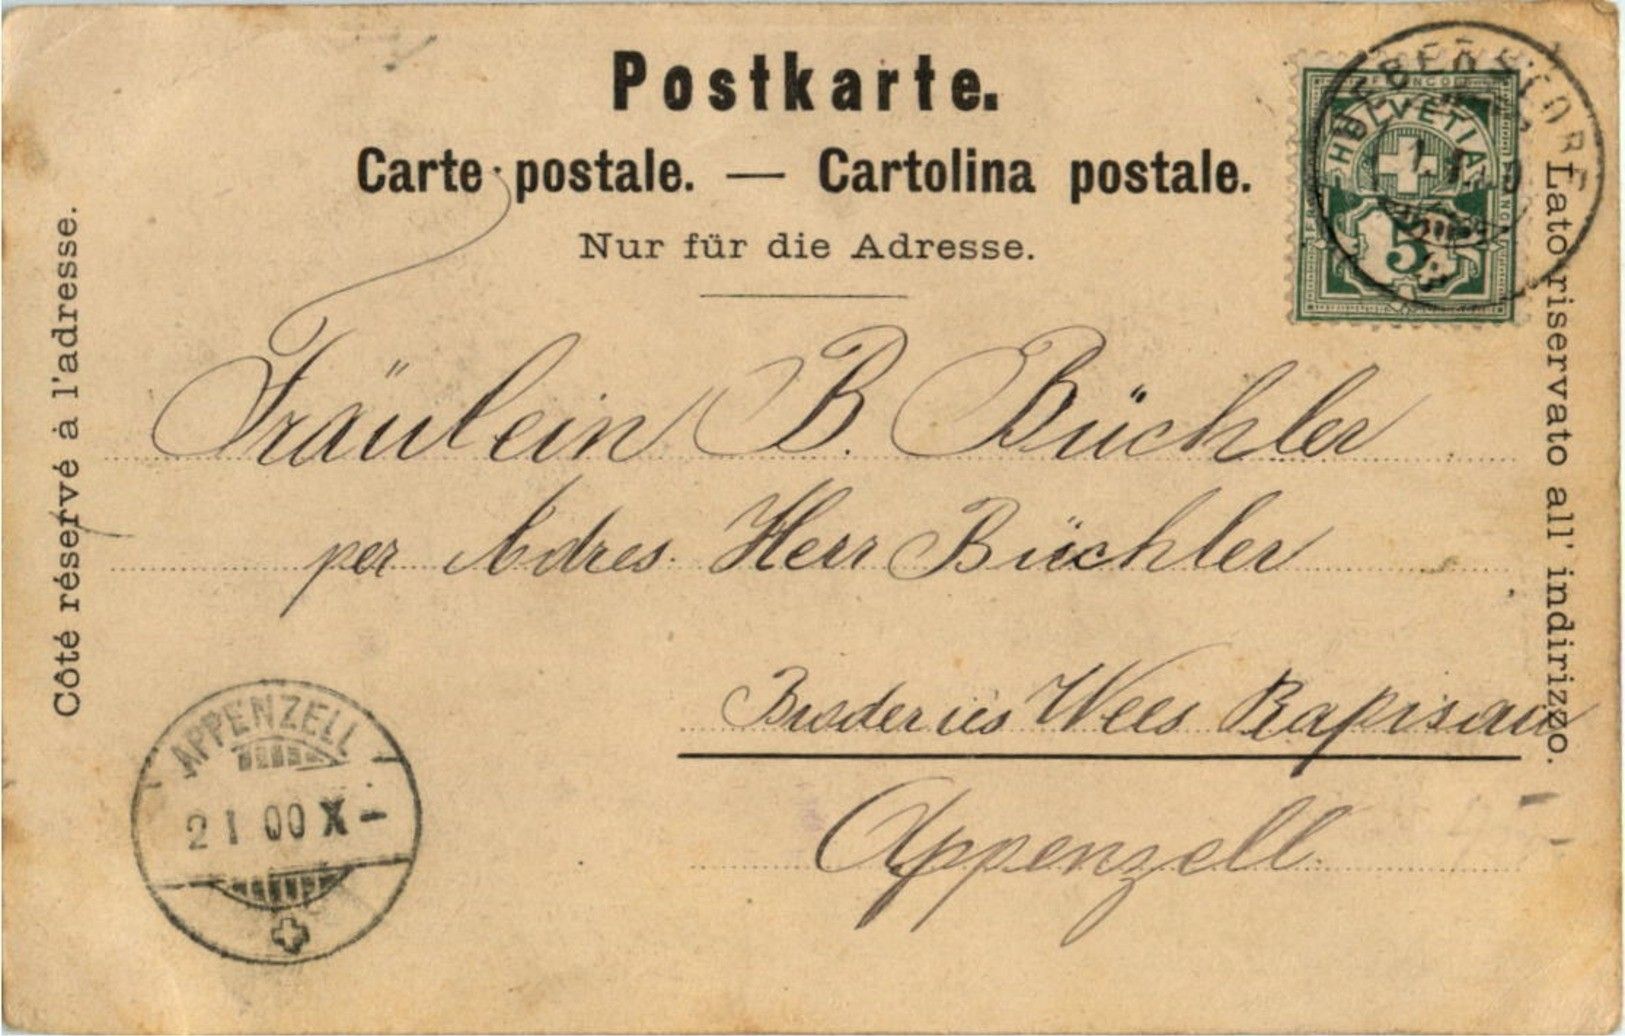 Postkarte.
Carte postale. — Cartolina postale.
Nur für die Adresse.
Côté réservé à l'adresse.
Lato riservato all' indirizzo.
FRANCO
HELVETIA
5
Fräulein B. Büchler
per Adres. Herr Büchler
Wees
Appenzell.
APPENZELL
2 I 00 X -